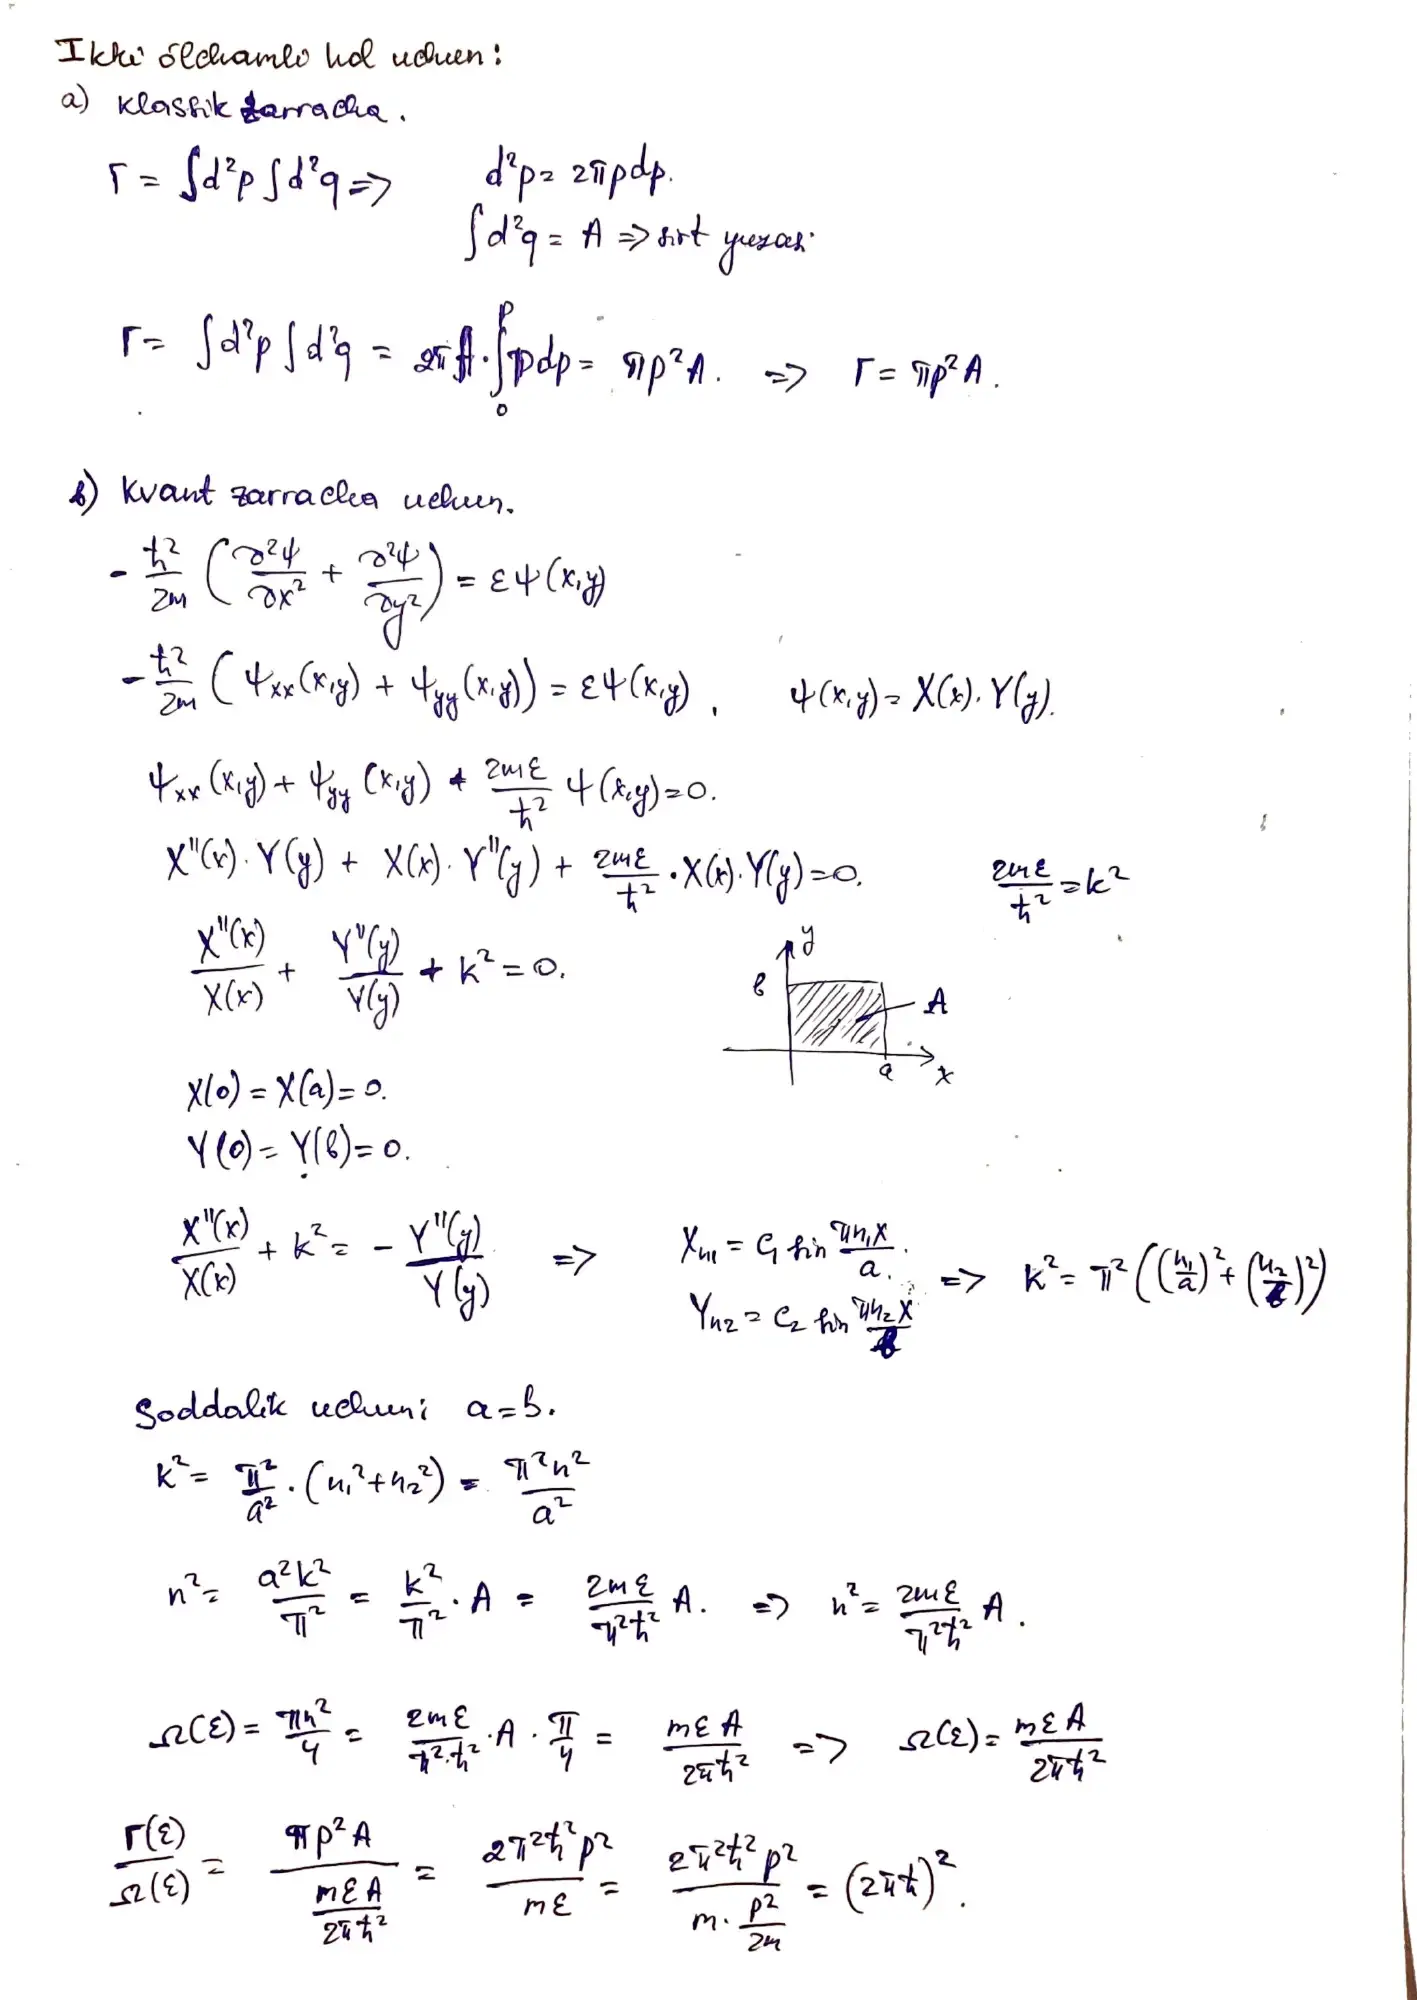 Ikki o'lchamli hol uchun:
a) Klassik zarracha.
Γ = ∫d²p ∫d²q => d²p = 2πpdp.
∫d²q = A => sirt yuzasi
Γ = ∫d²p ∫d²q = 2πA·∫₀ᵖ pdp = πp²A. => Γ = πp²A.
b) Kvant zarracha uchun.
- ħ²/2m (∂²ψ/∂x² + ∂²ψ/∂y²) = εψ(x,y)
- ħ²/2m (ψxx(x,y) + ψyy(x,y)) = εψ(x,y), ψ(x,y) = X(x)·Y(y).
ψxx(x,y) + ψyy(x,y) + 2mε/ħ² ψ(x,y) = 0.
X''(x)·Y(y) + X(x)·Y''(y) + 2mε/ħ² · X(x)·Y(y) = 0. 2mε/ħ² = k²
X''(x)/X(x) + Y''(y)/Y(y) + k² = 0.
y
b
A
a
x
X(0) = X(a) = 0.
Y(0) = Y(b) = 0.
X''(x)/X(x) + k² = - Y''(y)/Y(y) => Xn₁ = C₁ sin πn₁x/a. => k² = π²((n₁/a)² + (n₂/b)²)
Yn₂ = C₂ sin πn₂x/b
Soddalik uchun: a = b.
k² = π²/a² · (n₁² + n₂²) = π²n²/a²
n² = a²k²/π² = k²/π² · A = 2mε/π²ħ² A. => n² = 2mε/π²ħ² A.
Ω(ε) = πn²/4 = 2mε/π²·ħ² · A · π/4 = mεA/2πħ² => Ω(ε) = mεA/2πħ²
Γ(ε)/Ω(ε) = πp²A/(mεA/2πħ²) = 2π²ħ²p²/mε = 2π²ħ²p²/(m·p²/2m) = (2πħ)².